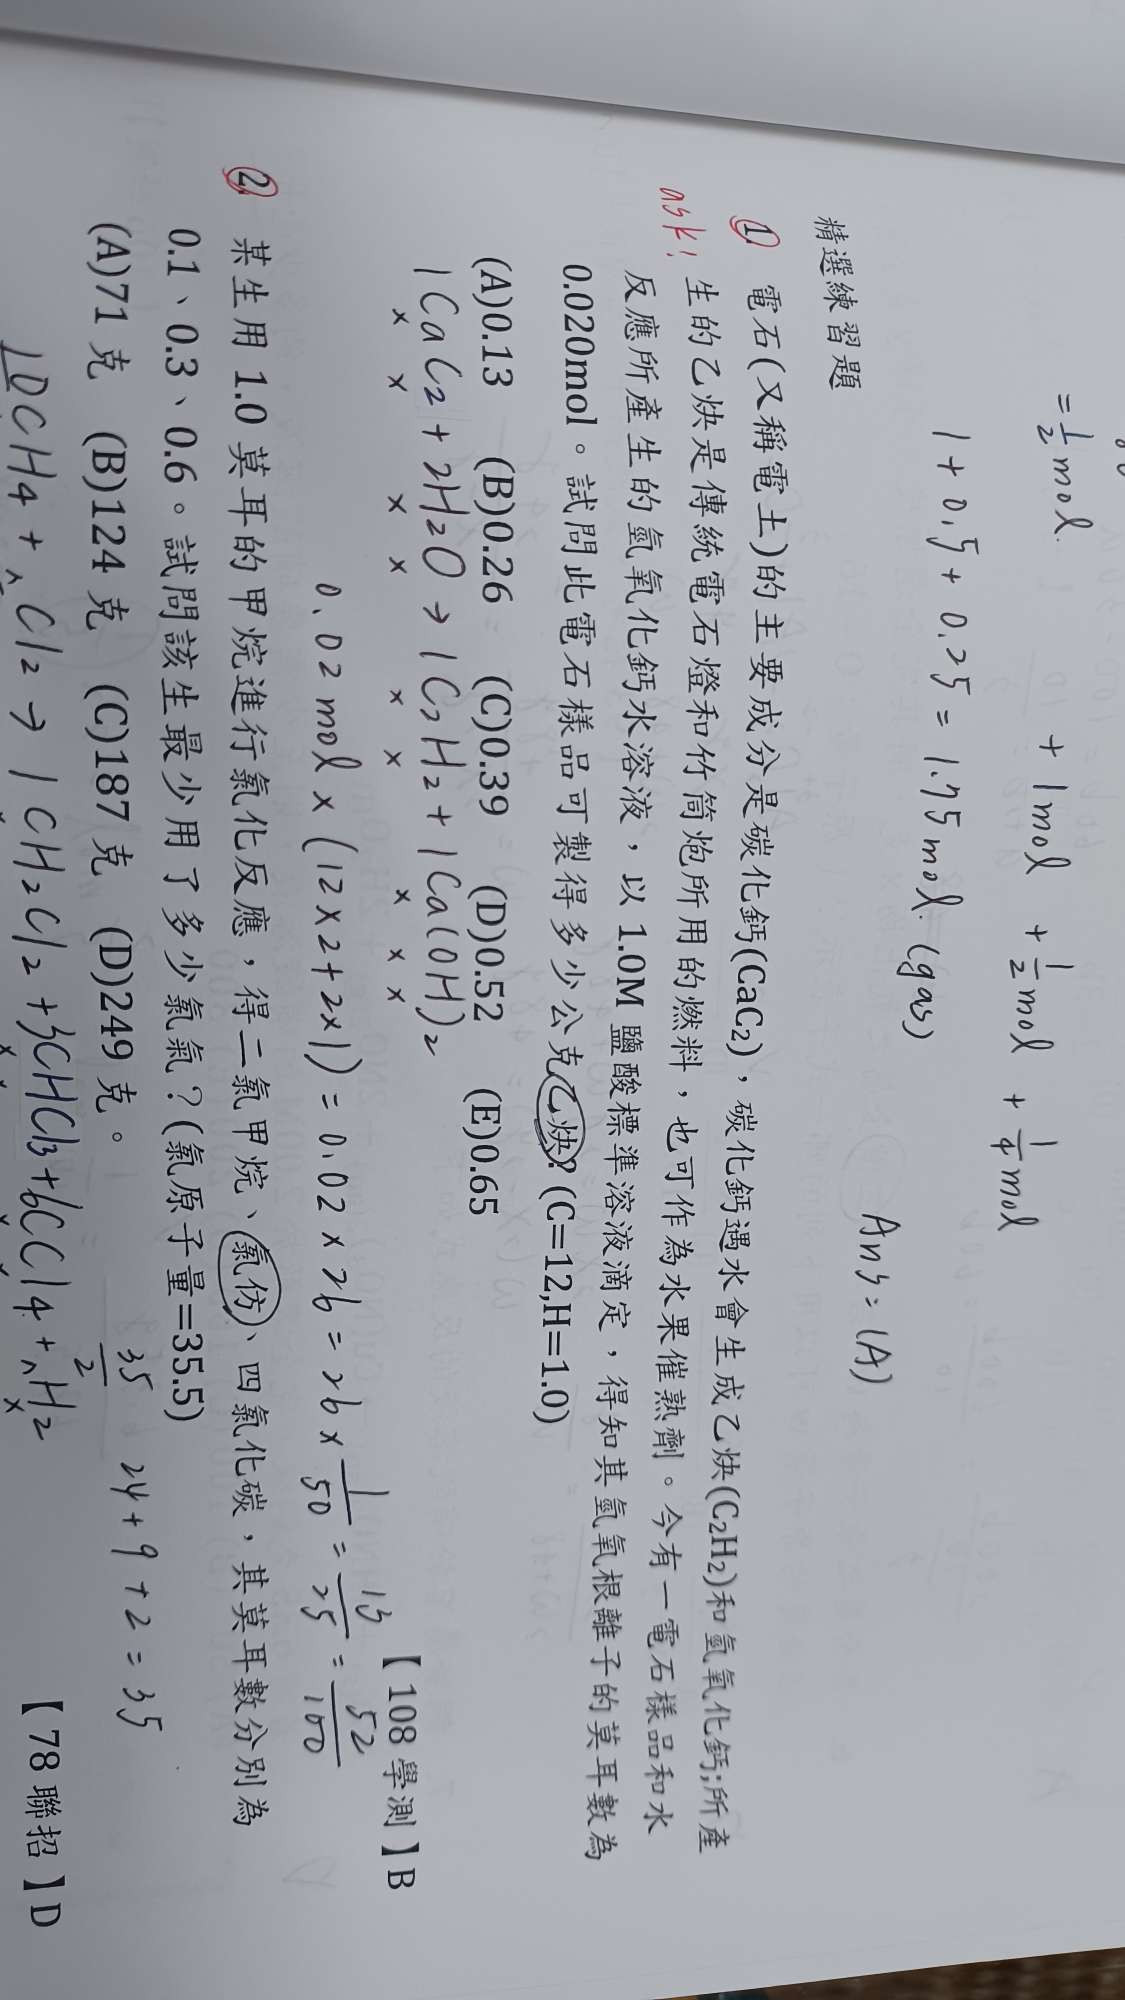 =1/2 mol + 1mol + 1/2 mol + 1/4 mol
1 + 0.5 + 0.25 = 1.75 mol. (gas)
Ans = (A)
精選練習題
1. 電石(又稱電土)的主要成分是碳化鈣(CaC₂)，碳化鈣遇水會生成乙炔(C₂H₂)和氫氧化鈣;所產
ask! 生的乙炔是傳統電石燈和竹筒炮所用的燃料，也可作為水果催熟劑。今有一電石樣品和水
反應所產生的氫氧化鈣水溶液，以 1.0M 鹽酸標準溶液滴定，得知其氫氧根離子的莫耳數為
0.020mol。試問此電石樣品可製得多少公克乙炔? (C=12,H=1.0)
(A)0.13 (B)0.26 (C)0.39 (D)0.52 (E)0.65
【108 學測】B
1CaC₂ + 2H₂O → 1C₂H₂ + 1Ca(OH)₂
x x x x x x x x x
0.02mol x (12x2+2x1) = 0.02 x 26 = 26 x 1/50 = 13/25 = 52/100
2. 某生用 1.0 莫耳的甲烷進行氯化反應，得二氯甲烷、氯仿、四氯化碳，其莫耳數分別為
0.1、0.3、0.6。試問該生最少用了多少氯氣？(氯原子量=35.5)
(A)71 克 (B)124 克 (C)187 克 (D)249 克。
【78 聯招】D
35/2 24+9+2=35
10CH₄ + Cl₂ → 1CH₂Cl₂ + 3CHCl₃ + 6CCl₄ + H₂